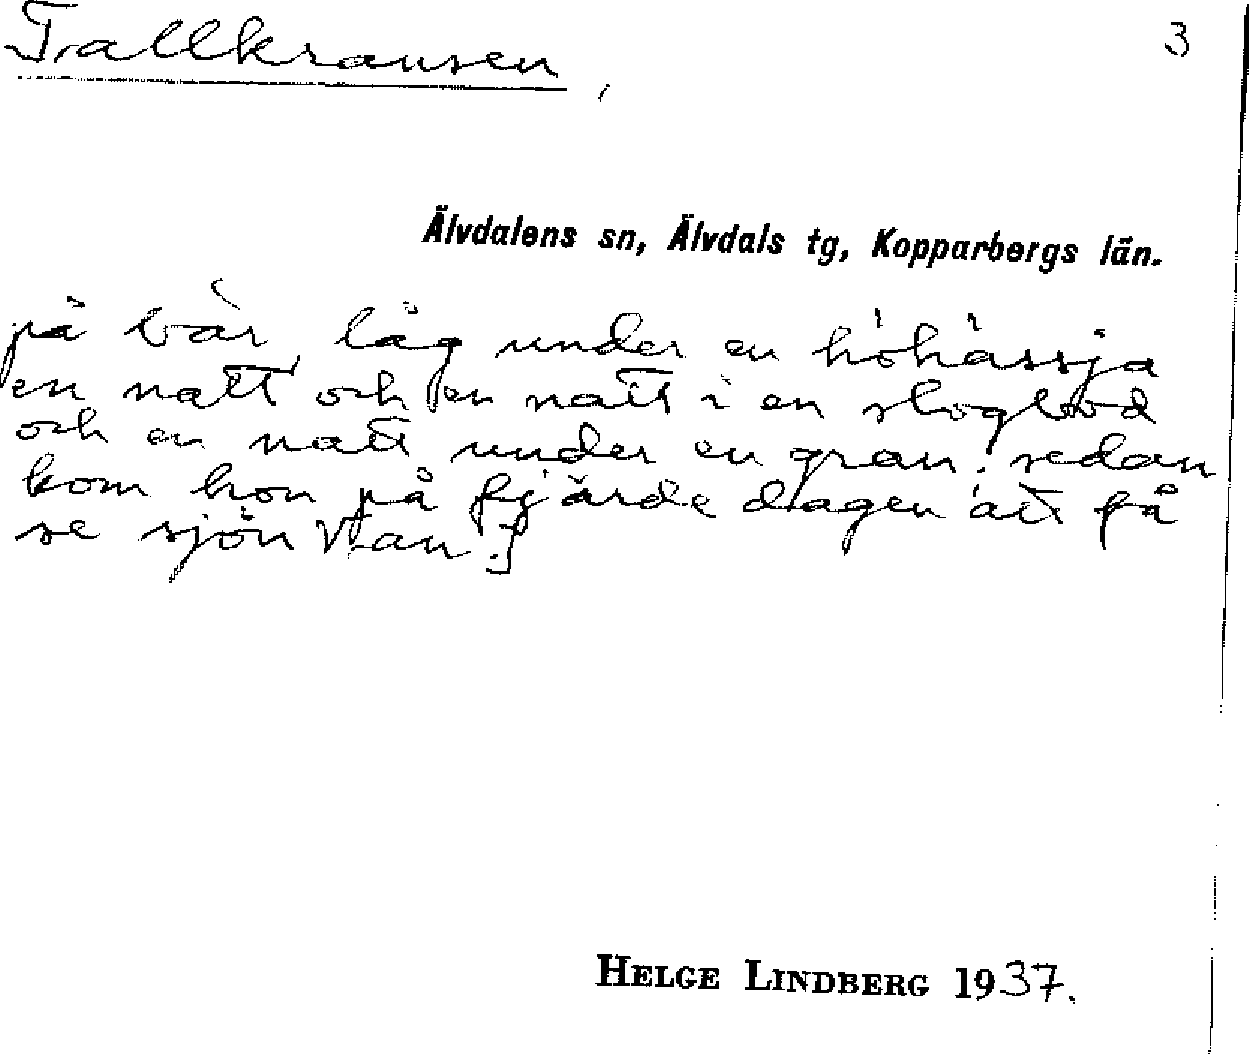 Tallkransen,
3
Älvdalens sn, Älvdals tg, Kopparbergs län.
på bär, låg under en höhässja
en natt och en natt i en slogbod
och en natt under en gran; sedan
kom hon på fjärde dagen att få
se sjön Van.]
HELGE LINDBERG 1937.